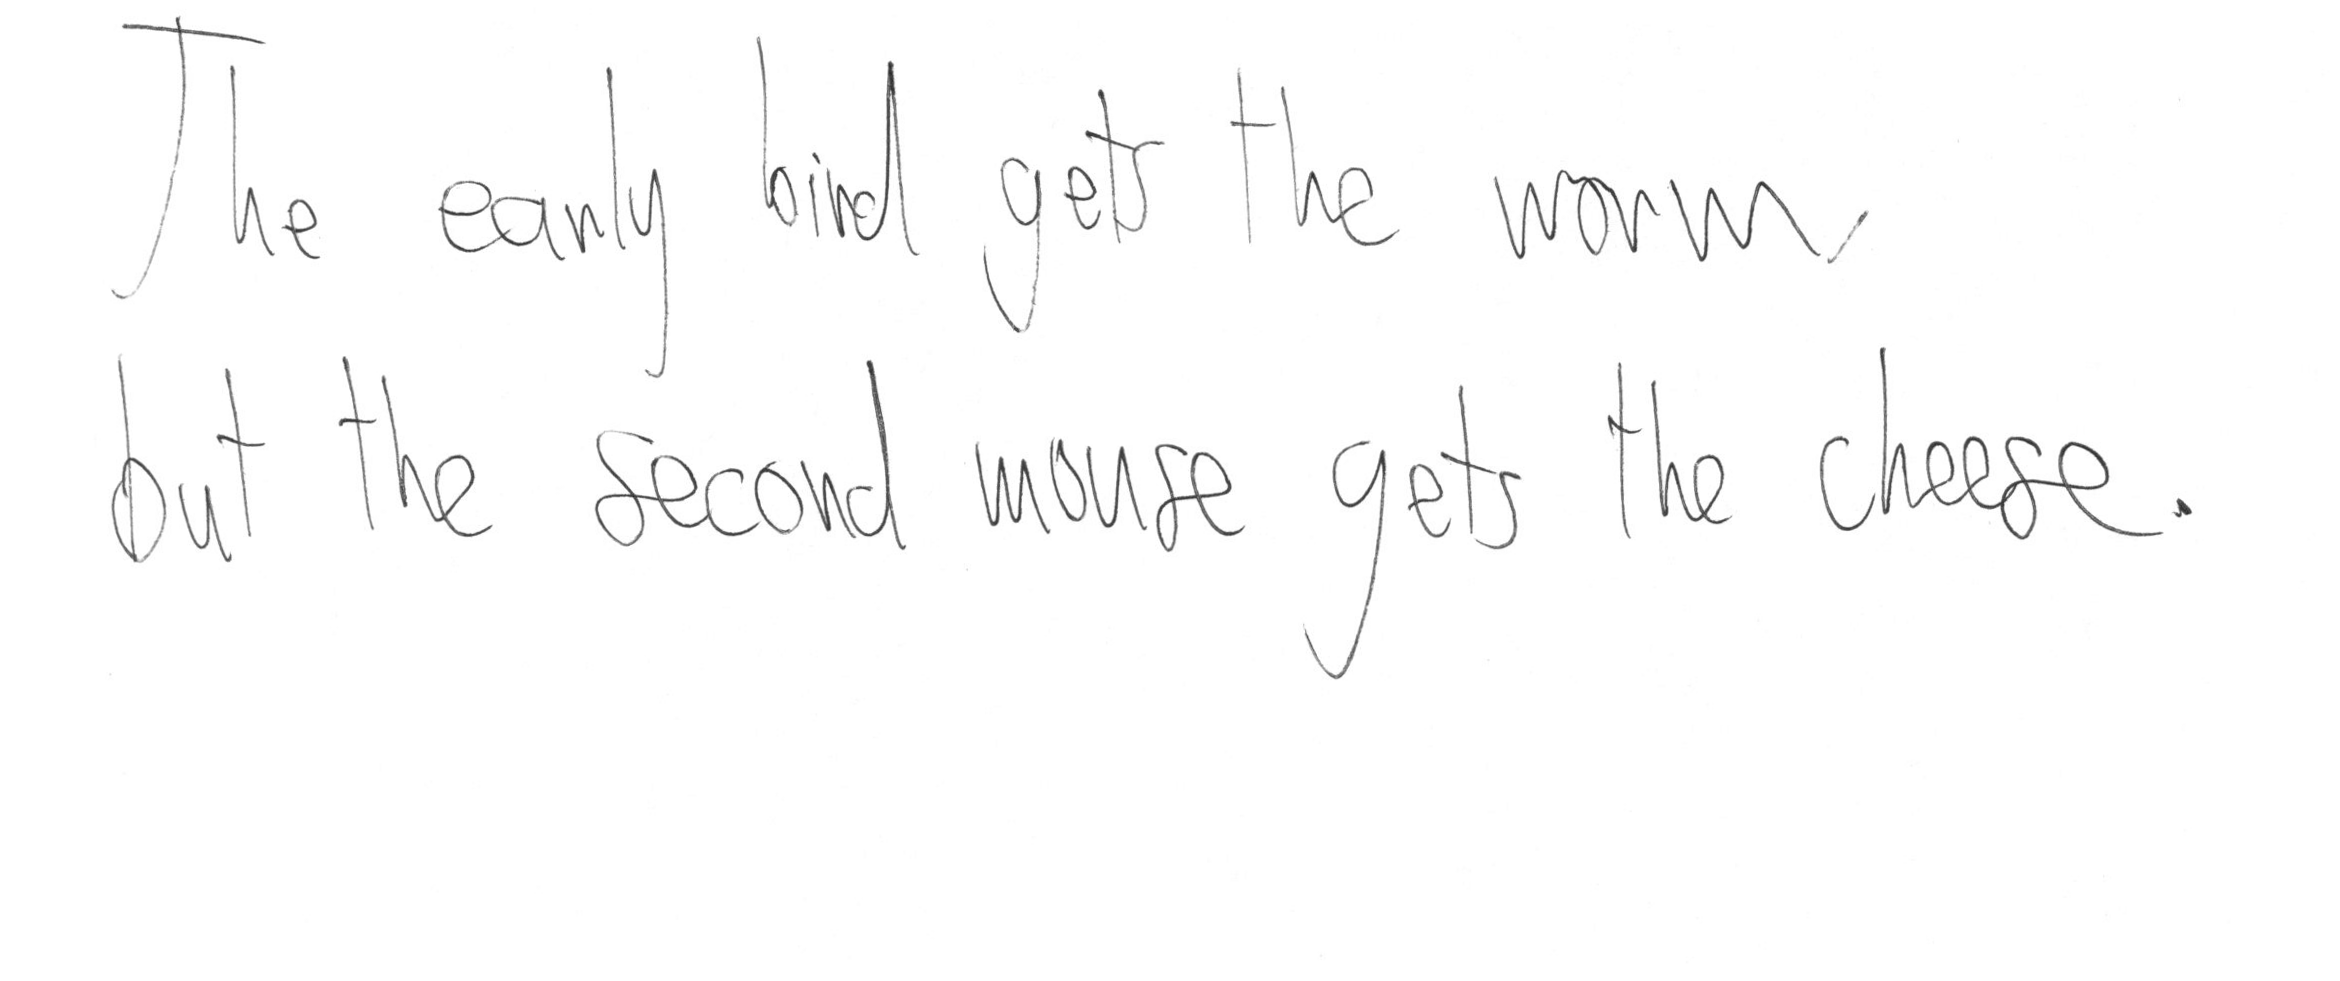 The early bird gets the worm,
but the second mouse gets the cheese.